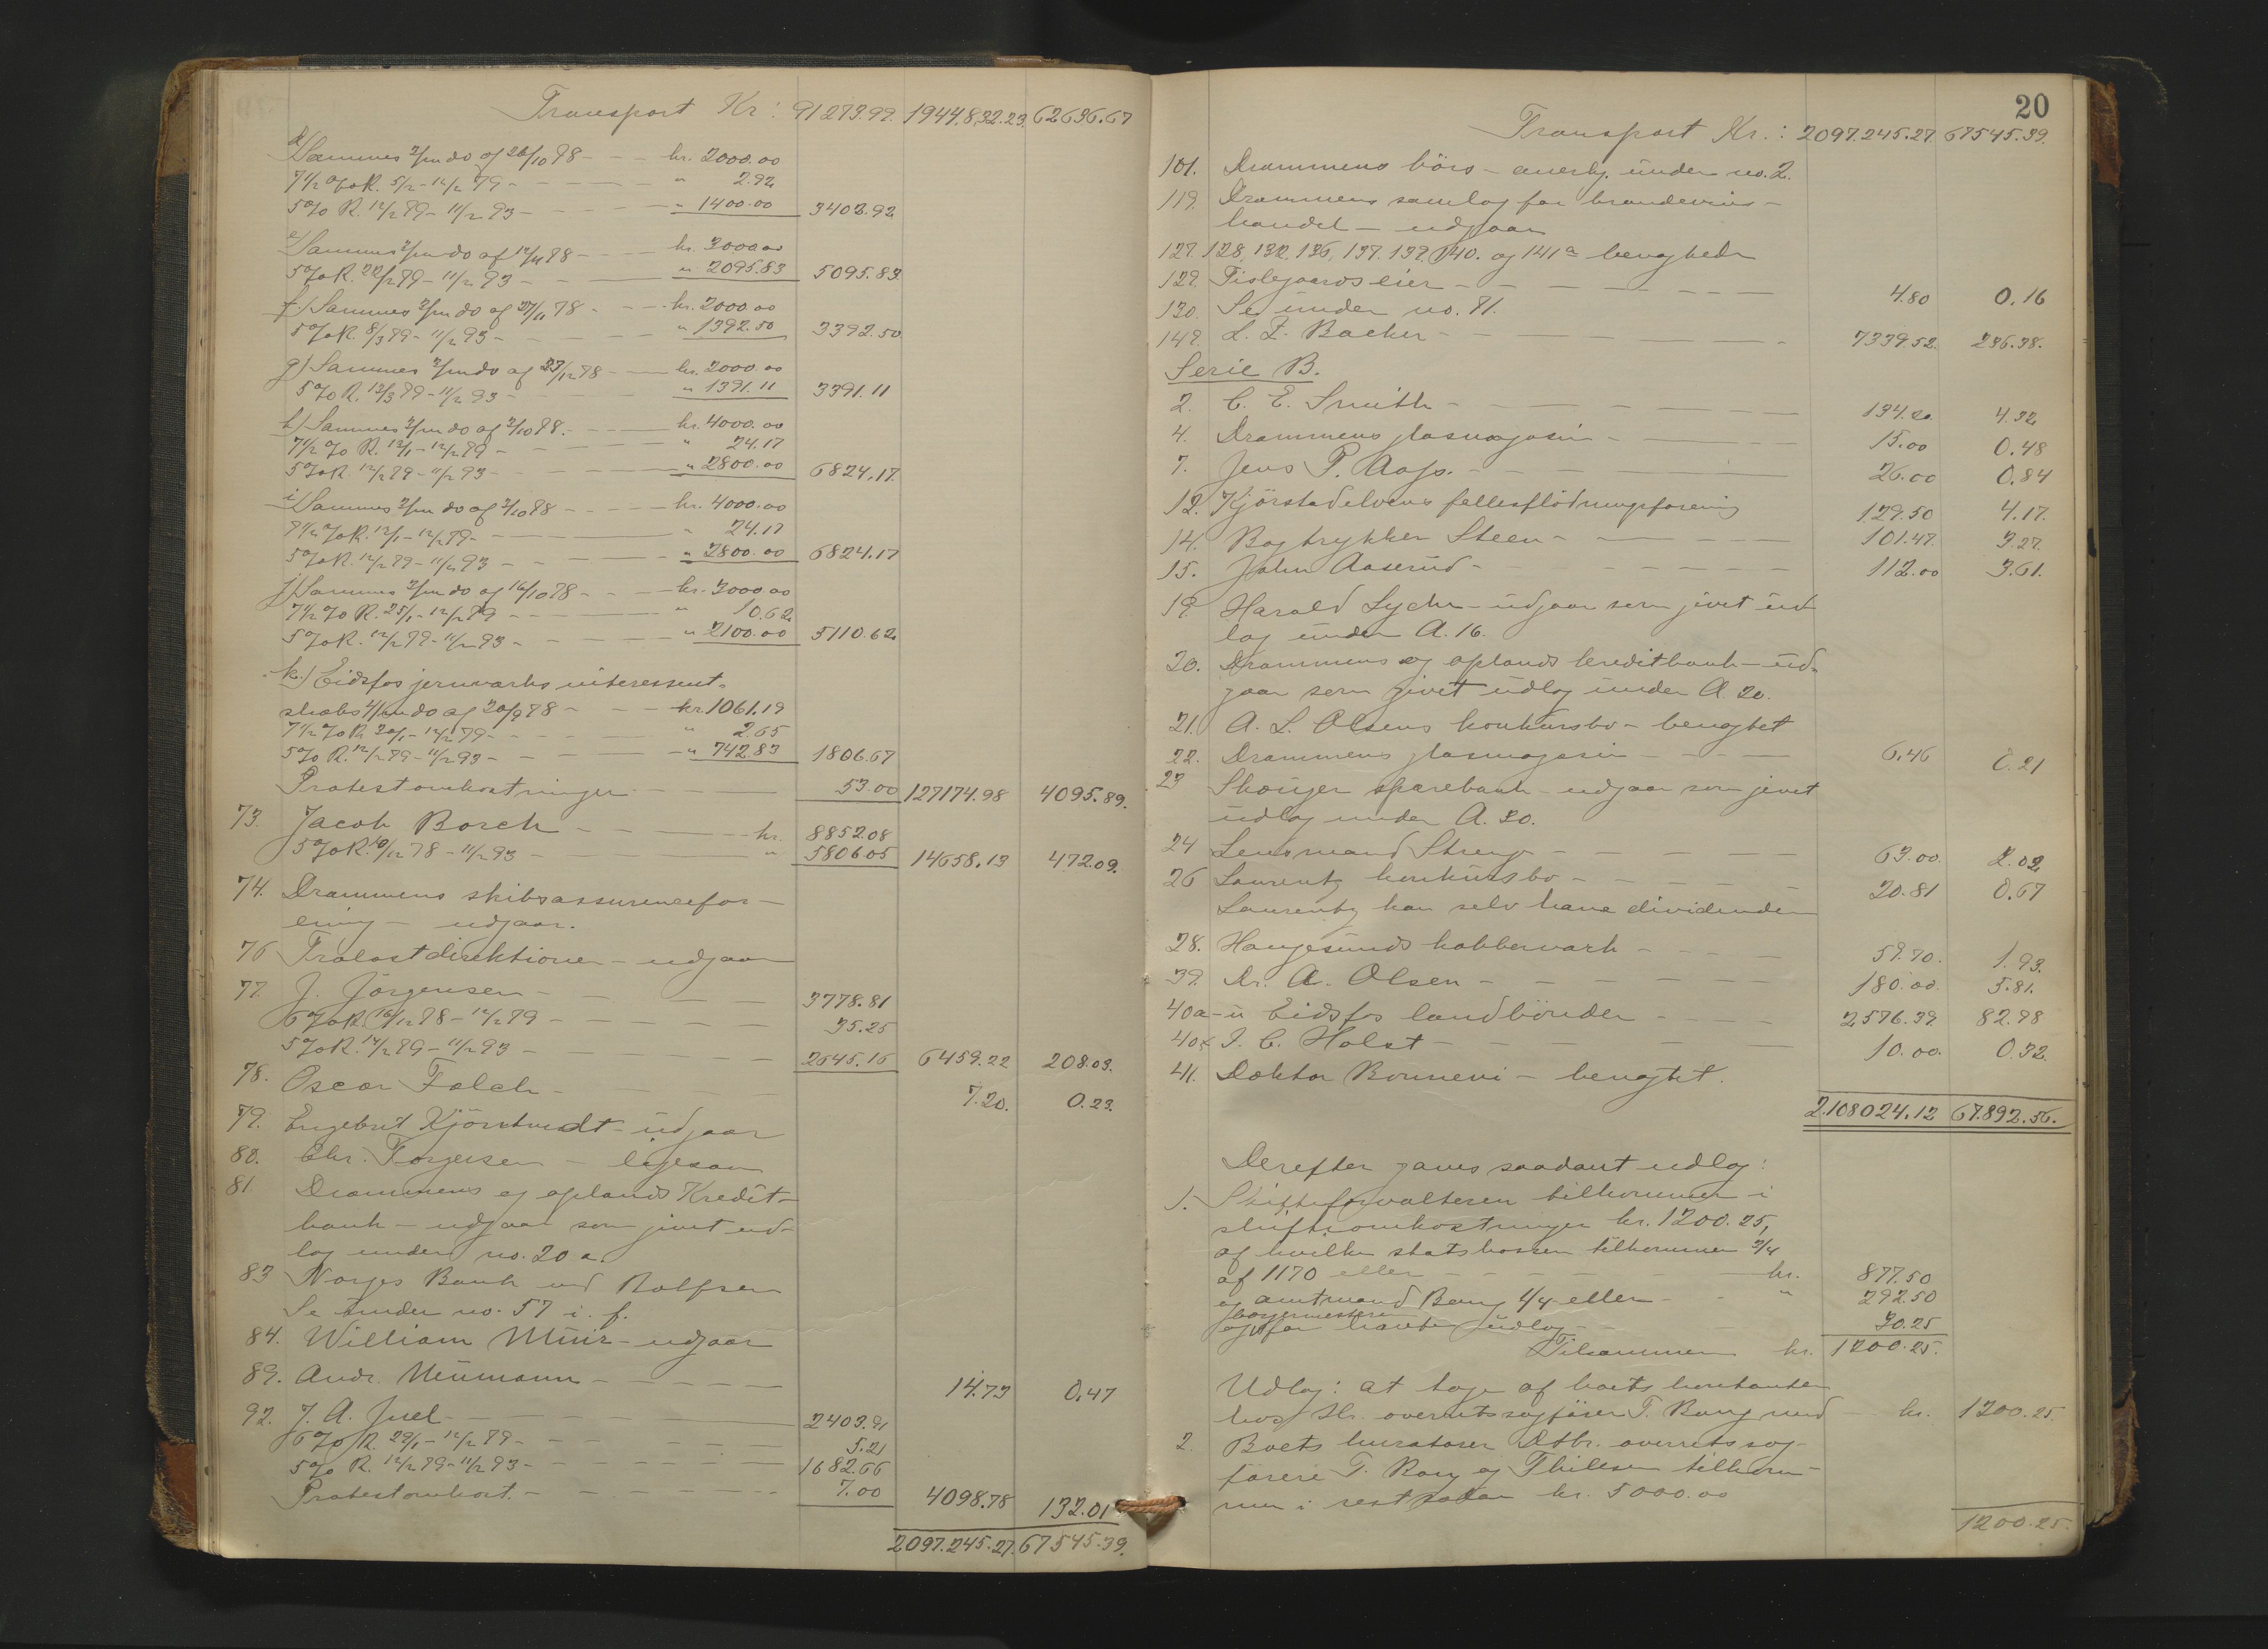 Transport Kr: 91273.99. 1944.832.23. 62636.67
d) Sammes 3/m do af 26/10 78 - - - kr. 2000.00
7 1/2 % R. 5/2 - 12/2 79 - - - - " 2.92
5 % R. 12/2 79 - 11/2 93 - - - - " 1400.00 3402.92
e) Sammes 3/m do af 12/11 78 - - - kr. 3000.00
5 % R. 22/2 79 - 11/2 93 - - " 2095.83 5095.83
f) Sammes 3/m do af 27/11 78 - - - kr. 2000.00
5 % R. 8/3 79 - 11/2 93 - - - " 1392.50 3392.50
g) Sammes 3/m do af 23/12 78 - - kr. 2000.00
5 % R. 13/3 79 - 11/2 93 - - - " 1391.11 3391.11
h) Sammes 3/m do af 2/10 78. - - - kr. 4000.00
7 1/2 % R. 12/1 - 12/2 79 - - " 24.17
5 % R. 12/2 79 - 11/2 93 - - - " 2800.00 6824.17
i) Sammes 3/m do af 2/10 78 - - - - kr. 4000.00
7 1/2 % R. 12/1 - 12/2 79 - - " 24.17
5 % R. 12/2 79 - 11/2 93 - - - " 2800.00 6824.17
j) Sammes 3/m do af 16/10 78 - - - kr. 3000.00
7 1/2 % R. 25/1 - 12/2 79 - - " 10.62
5 % R. 12/2 79 - 11/2 93 - - - " 2100.00 5110.62
k.) Eidsfos jernværks interessent-
skabs 4/m do af 20/9 78 - - - kr. 1061.19
7 1/2 % R. 30/1 - 12/2 79 - - " 2.65
5 % R. 12/2 79 - 11/2 93 - - - " 742.83 1806.67
Protestomkostninger - - 53.00 127174.98 4095.89.
73. Jacob Borch - - - kr. 8852.08
5 % R. 10/12 78 - 11/2 93 - - " 5806.05 14658.13 472.09.
74. Drammens skibsassurancefor-
ening - udgaar.
76 Trælastdirektionen - udgaar
77. J. Jörgensen - - - 3778.81
6 % R. 16/12 78 - 12/2 79 - - - - 35.25
5 % R. 12/2 79 - 11/2 93 - - - - 2645.16 6459.22 208.03.
78. Oscar Falch - - - 7.20. 0.23.
79. Engebret Kjörstvedt - udgaar
80. Chr. Torgersen - ligesom
81. Drammens og oplands Kredit-
bank - udgaar som givet ud-
læg under no. 20 a.
83 Norges Bank ved Rolfsen
Se under no. 57 i. f.
84. William Muir - udgaar
89. Andr. Neumann - - - - 14.73 0.47
92. J. A. Juel - - - 2403.91
6 % R. 29/1 - 12/2 79 - - - - 5.21
5 % R. 12/2 79 - 11/2 93 - - - - 1682.66
Protestomkost. - - - - 7.00 4098.78 132.01
2097.245.27. 67545.39.
20
Transport Kr.: 2097.245.27. 67545.39.
101. Drammens börs - anerkj. under no. 2.
119. Drammens samlag for brændevins-
handel - udgaar
127. 128, 132, 136, 137. 139, 140. og 141 a benegtede
129. Fislegaards eier - - - - 4.80 0.16
130. Se under no. 71.
149. L. F. Backer - - - - 7339.52. 236.38.
Serie B.
2. C. E. Smith - - - - 134.20 4.32
4. Drammens glasmagasin - - - 15.00 0.48
7. Jens P. Aas. - - - - 26.00 0.84
12. Kjörstadelvens fællesflödningsforening 129.50 4.17.
14. Bogtrykker Steen - - - 101.47. 3.27.
15. John Aaserud - - - - 112.00 3.61.
19. Harald Lyche - udgaar som givet ud-
læg under A. 16.
20. Drammens og oplands kreditbank - ud-
gaar som givet udlæg under A. 20.
21. A. L. Olsens konkursbo - benegtet
22. Drammens glasmagasin - - - 6.46 0.21
23 Skouger sparebank - udgaar som givet
udlæg under A. 30.
24 Lensmand - - - 63.00. 2.02
26 Laurentz konkursbo - - - 20.81 0.67
Laurentz kan selv hæve dividenden
28. Haugesunds kobberværk - - - 59.70. 1.93.
39. Dr. A. Olsen - - - - 180.00. 5.81.
40a-u Eidsfos landbönder - - - 2576.39 82.98
40x J. C. Holst - - - - 10.00. 0.32.
41. Doktor Bonnevi - benegtet.
2.108024.12 67.892.56.
Derefter gives saadant udlæg:
1. Skifteforvalteren tilkommer i
skifteomkostninger kr. 1200.25,
af hvilke statskassen tilkommer 3/4
af 1170 eller - - - - kr. 877.50
og amtmand Bang 1/4 eller - - " 292.50
borgermesteren
og for havte udlæg - - 30.25
Tilsammen kr. 1200.25.
Udlæg: at tage af boets kontanter
hos Hr. overretssagförer T. Bang med kr. 1200.25.
2. Boets kuratorer Dhrr. overretssag-
förere T. Bang og Thilesen tilkom-
mer i rest salær kr. 5000.00
1200.25.